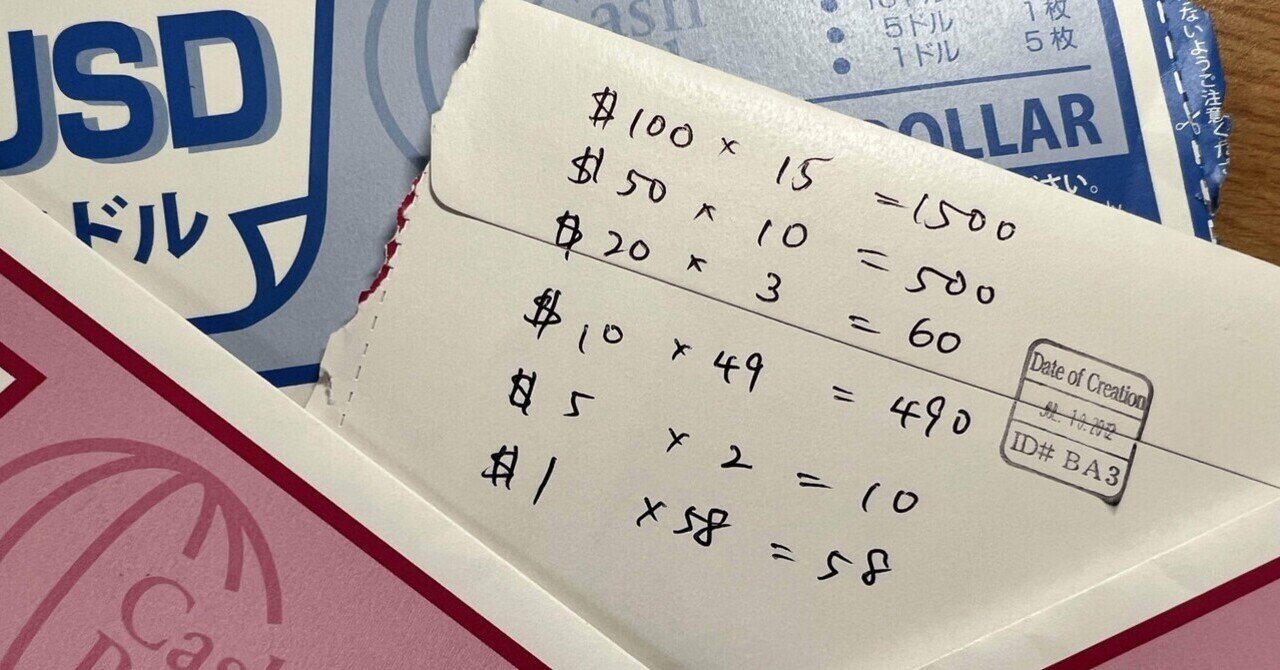 USD
ドル
Cash
5ドル 1枚
1ドル 5枚
DOLLAR
さい。
ないようご注意くだ
$100 × 15 =1500
$50 × 10 = 500
$20 × 3 = 60
$10 × 49 = 490
$5 × 2 = 10
$1 × 58 = 58
Date of Creation
JUL. 10. 2012
ID# BA3
Cash